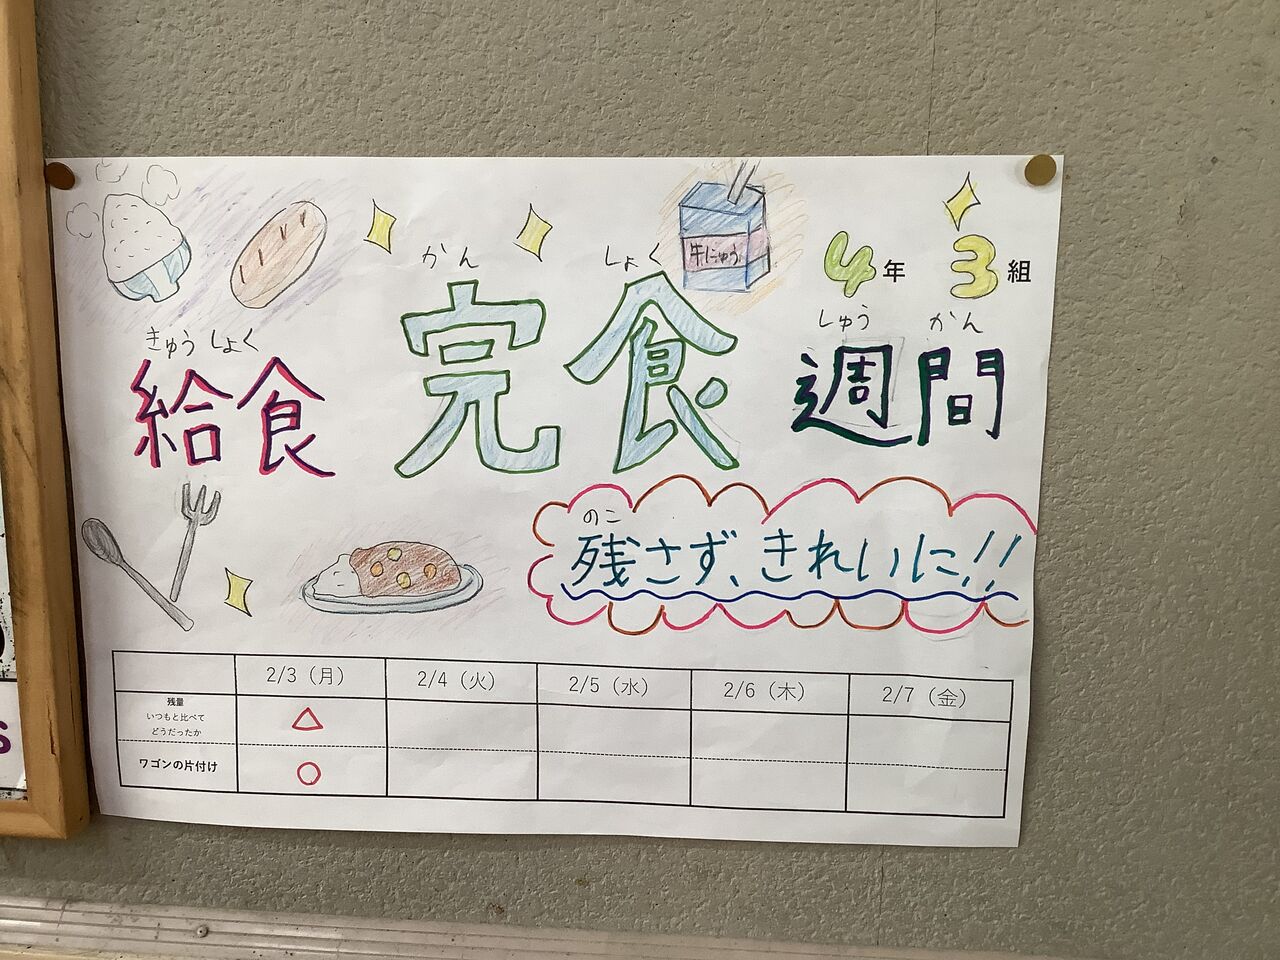 牛にゅう
4年 3組
きゅうしょく かんしょく しゅうかん
給食 完食 週間
のこ
残さず、きれいに!!
2/3（月） 2/4（火） 2/5（水） 2/6（木） 2/7（金）
残量
いつもと比べて
どうだったか
△
ワゴンの片付け ○
s